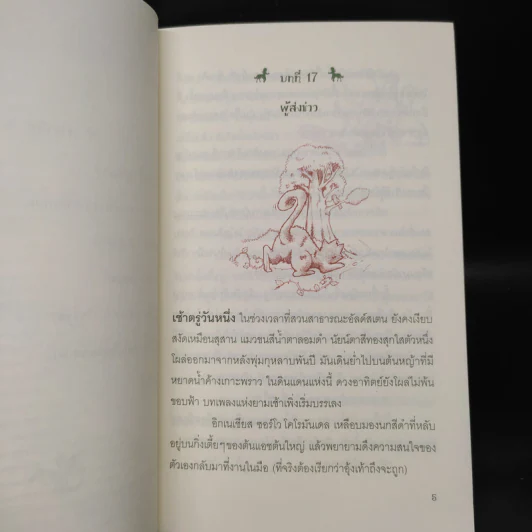 บทที่ 17
ผู้ส่งข่าว
เช้าตรู่วันหนึ่ง ในช่วงเวลาที่สวนสาธารณะอัลด์สเตน ยังคงเงียบ
สงัดเหมือนสุสาน แมวขนสีน้ำตาลอมดำ นัยน์ตาสีทองสุกใสตัวหนึ่ง
โผล่ออกมาจากหลังพุ่มกุหลาบพันปี มันเดินย่ำไปบนต้นหญ้าที่มี
หยาดน้ำค้างเกาะพราว ในดินแดนแห่งนี้ ดวงอาทิตย์ยังโผล่ไม่พ้น
ขอบฟ้า บทเพลงแห่งยามเช้าเพิ่งเริ่มบรรเลง
อิกเนเชียส ซอร์โว โคโรมันเดล เหลือบมองนกสีดำที่หลับ
อยู่บนกิ่งเตี้ยๆของต้นแอชต้นใหญ่ แล้วพยายามดึงความสนใจของ
ตัวเองกลับมาที่งานในมือ (ที่จริงต้องเรียกว่าอุ้งเท้าถึงจะถูก)